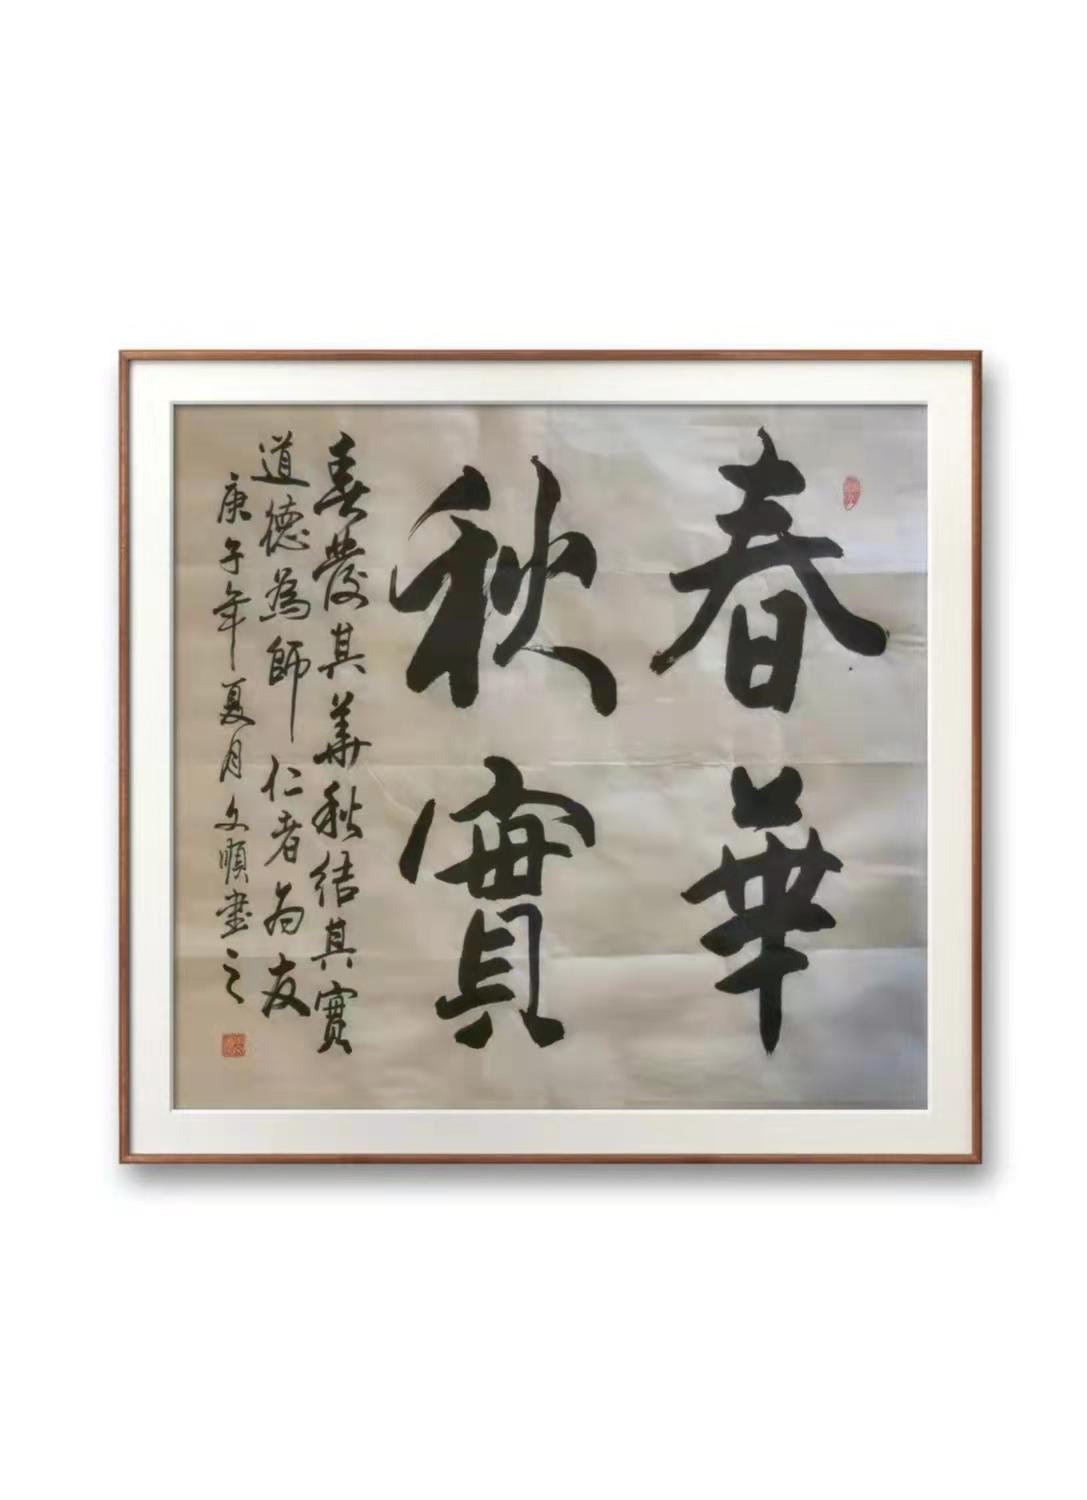 春華
秋實
春發其華秋結其實
道德為師仁者為友
庚子年夏月文順書之